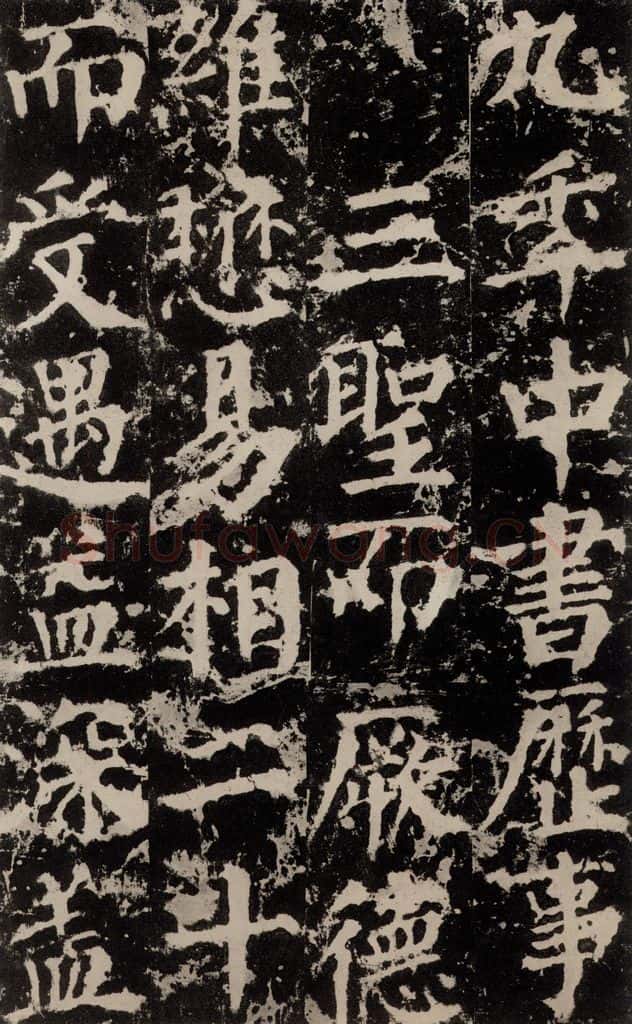 九年中書歷事
三聖厥德
維懋易相二十
而受遇益深盖
Shufawang.CN